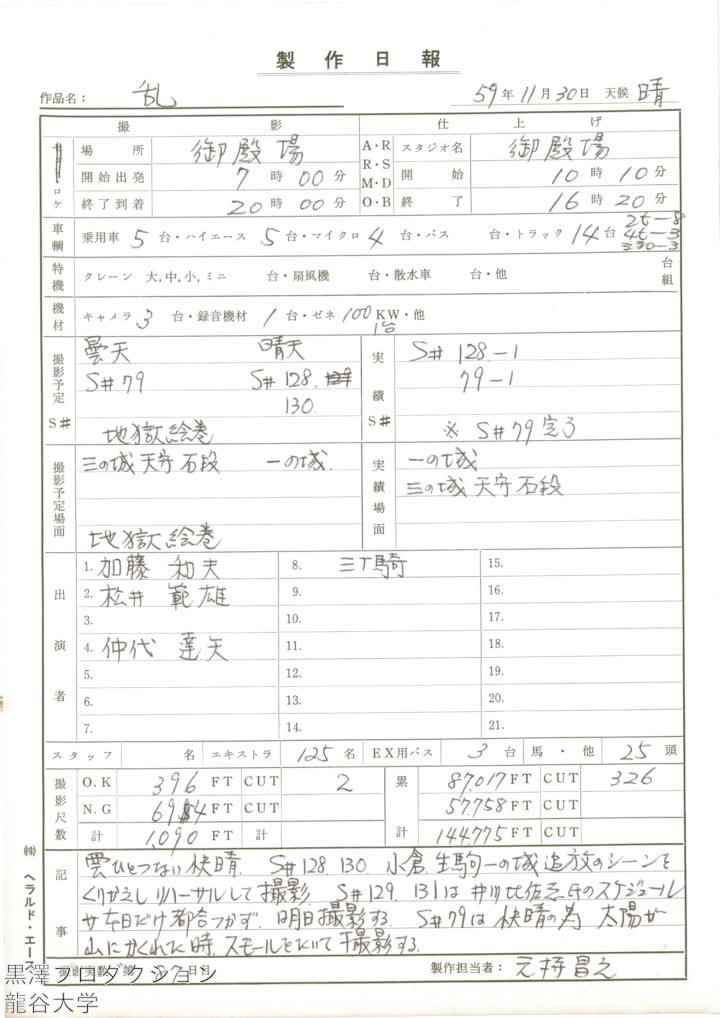 製作日報
作品名： 乱 59年11月30日 天候 晴
撮影 仕上げ
ロケ 場所 御殿場 A・R R・S M・D O・B スタジオ名 御殿場
開始出発 7時00分 開始 10時10分
終了到着 20時00分 終了 16時20分
車輌 乗用車 5台・ハイエース 5台・マイクロ 4台・バス 台・トラック 14台 2t-8 4t-3
特機 クレーン 大,中,小,ミニ 台・扇風機 台・散水車 台・他 台組
機材 キャメラ 3台・録音機材 1台・ゼネ 100KW・他
1台
撮影予定 S# 曇天 晴天 実績 S# S# 128-1
S# 79 S# 128. 79-1
130.
地獄絵巻 ※ S# 79完了
撮影予定場面 三の城 天守 石段 一の城. 実績場面 一の城
三の城 天守 石段
地獄絵巻
出演者 1. 加藤 和夫 8. 三十騎 15.
2. 松井 範雄 9. 16.
3. 10. 17.
4. 仲代 達矢 11. 18.
5. 12. 19.
6. 13. 20.
7. 14. 21.
スタッフ 名 エキストラ 125名 EX用バス 3台 馬・他 25頭
撮影尺数 O.K 396 FT CUT 2 累計 87,017 FT CUT 326
N.G 694 FT CUT 57,758 FT CUT
計 1,090 FT 計 144,775 FT CUT
記事 雲ひとつない快晴. S# 128. 130 小倉. 生駒 一の城 追放のシーンを
くりかえし リハーサルして撮影. S# 129. 131は 井川比佐志氏のスケジュール
が本日だけ都合つかず. 明日撮影する. S# 79は 快晴の為 太陽が
山にかくれた時. スモークをたいて 撮影する.
製作担当者：
㈱ ヘラルド・エース
黒澤プロダクション
龍谷大学